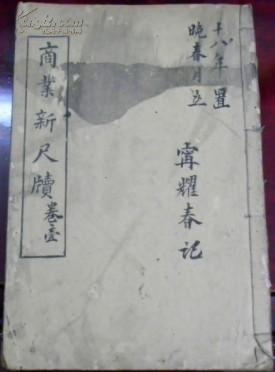 十八年置
晚春月立
甯耀春记
商業新尺牘卷壹